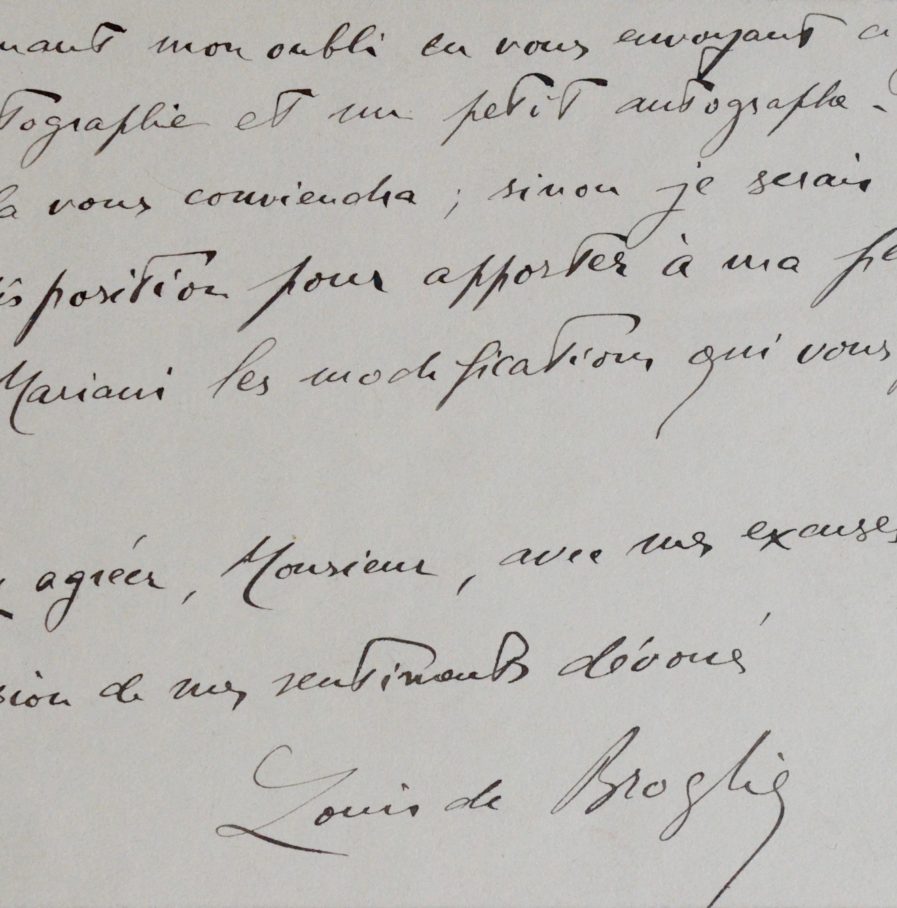 nant mon oubli en vous envoyant a
tographie et un petit autographe.
la vous conviendra ; sinon je serais
isposition pour apporter à ma
Mariani les modifications qui vous
agréer, Monsieur, avec mes excuses
sion de mes sentiments dévoués
Louis de Broglie